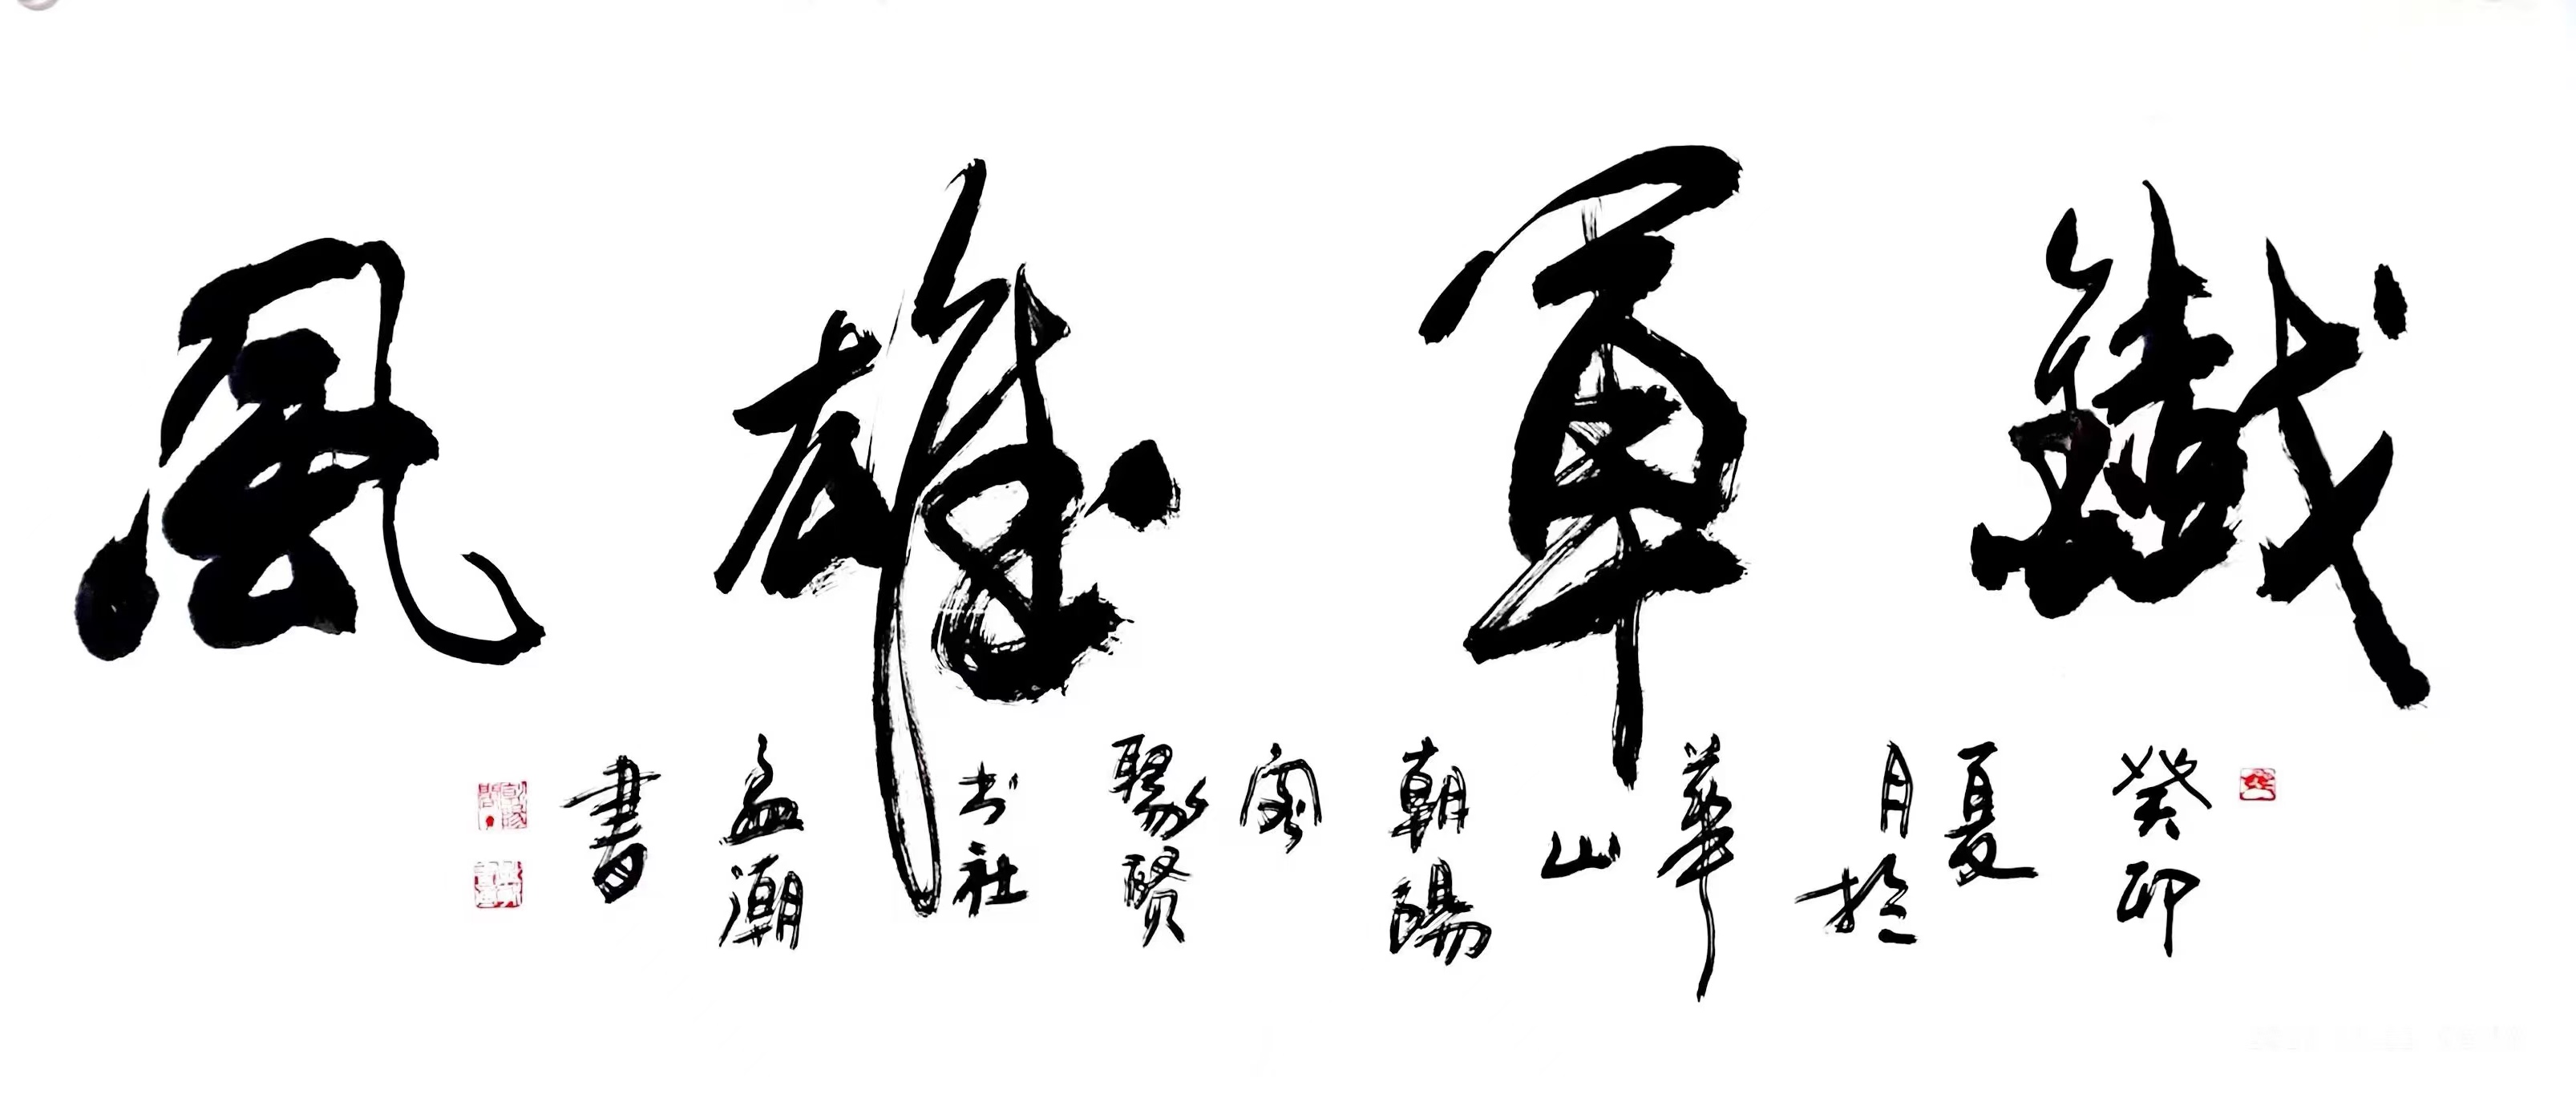 鐵軍雄風
癸卯
夏
月於
華
山
朝陽
閣
聚賢
书社
孟潮
書